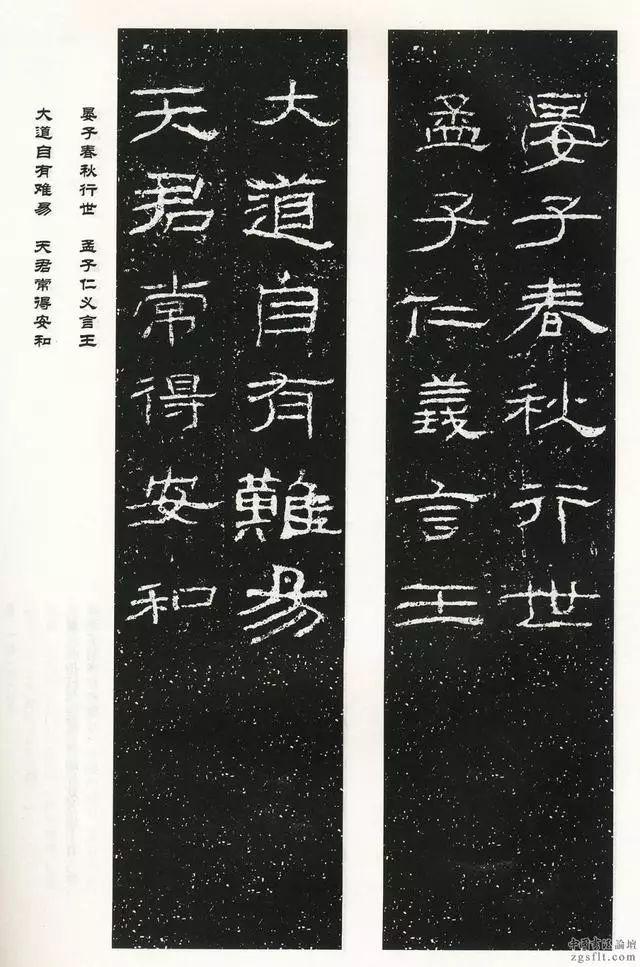 晏子春秋行世
孟子仁義言王
大道自有難易
天君常得安和
晏子春秋行世　孟子仁义言王
大道自有难易　天君常得安和
中国书法論壇
zgsflt.com